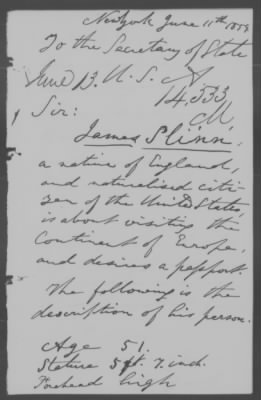 New York June 11th 1859
To the Secretary of State
June 13. U. S. A
14,533
Sir:
James Slinn,
a native of England,
and naturalised citi-
zen of the United States,
is about visiting the
Continent of Europe,
and desires a passport.
The following is the
description of his person.
Age 51.
Stature 5 ft. 7. inch.
Forehead high